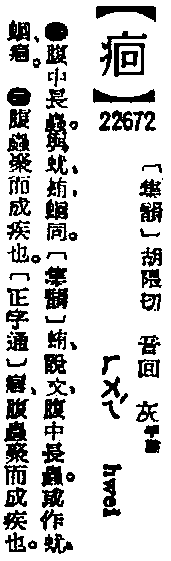 【痐】
22672
〔集韻〕胡隈切 音回 灰平聲
ㄏㄨㄟˊ hwei
㊀腹中長蟲。與蚘、蛕、蛔同。〔集韻〕蛕、說文、腹中長蟲。或作蚘、
蛔、痐。㊁腹蟲聚而成疾也。〔正字通〕痐、腹蟲聚而成疾也。